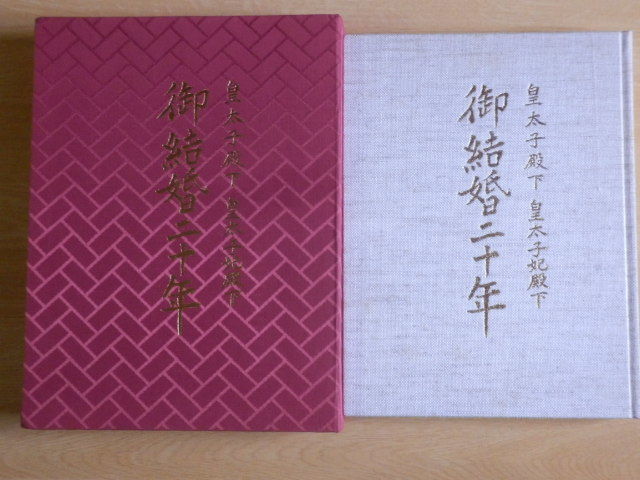 皇太子殿下 皇太子妃殿下
御結婚二十年
皇太子殿下 皇太子妃殿下
御結婚二十年